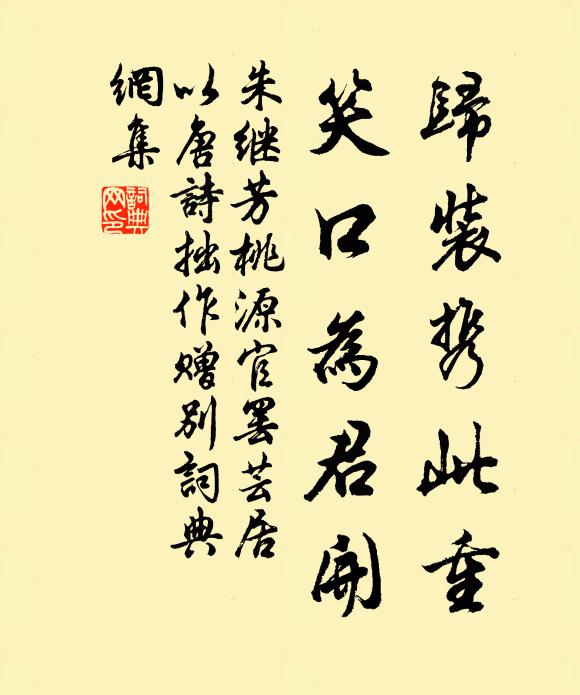 歸裝携此重
笑口為君開
朱继芳桃源官罢芸居
以唐詩拙作赠别詞典
網集
詞典網印